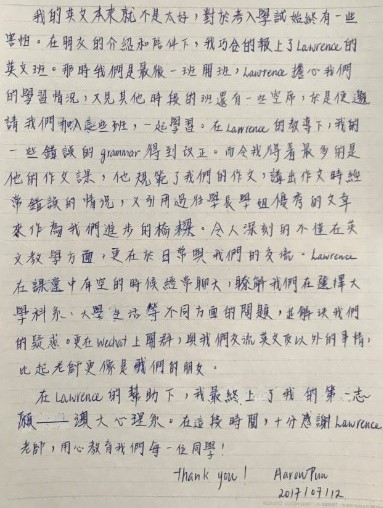 我的英文本來就不是太好，對於考入學試始終有一些
害怕。在朋友的介紹和陪伴下，我巧合的報上了Lawrence的
英文班。那時我們是最後一班開班，Lawrence擔心我們
的學習情況，又見其他時段的班還有一些空所，於是便邀
請我們加入這些班，一起學習。在Lawrence的教導下，我的
一些錯誤的grammar得到改正。而令我得着最多的是
他的作文課，他規範了我們的作文，講出作文時經
常錯誤的情況，又引用過往學長學姐優秀的文章
來作為我們進步的橋樑。令人深刻的不僅在英
文教學方面，更在於日常與我們的交流。Lawrence
在課堂中有空的時候經常聊天，瞭解我們在選擇大
學科系、大學生活等不同方面的問題，並解決我們
的疑惑。更在wechat上開群，與我們交流英文及以外的事情，
比起老師更像是我們的朋友。
在Lawrence的幫助下，我最終上了我的第一志
願——澳大心理系。在這段時間，十分感謝Lawrence
老師，用心教育我們每一位同學！
Thank you! Aaron Pun
2017/07/12